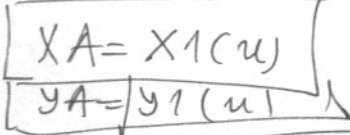 XA= X1(u)
YA= Y1(u)